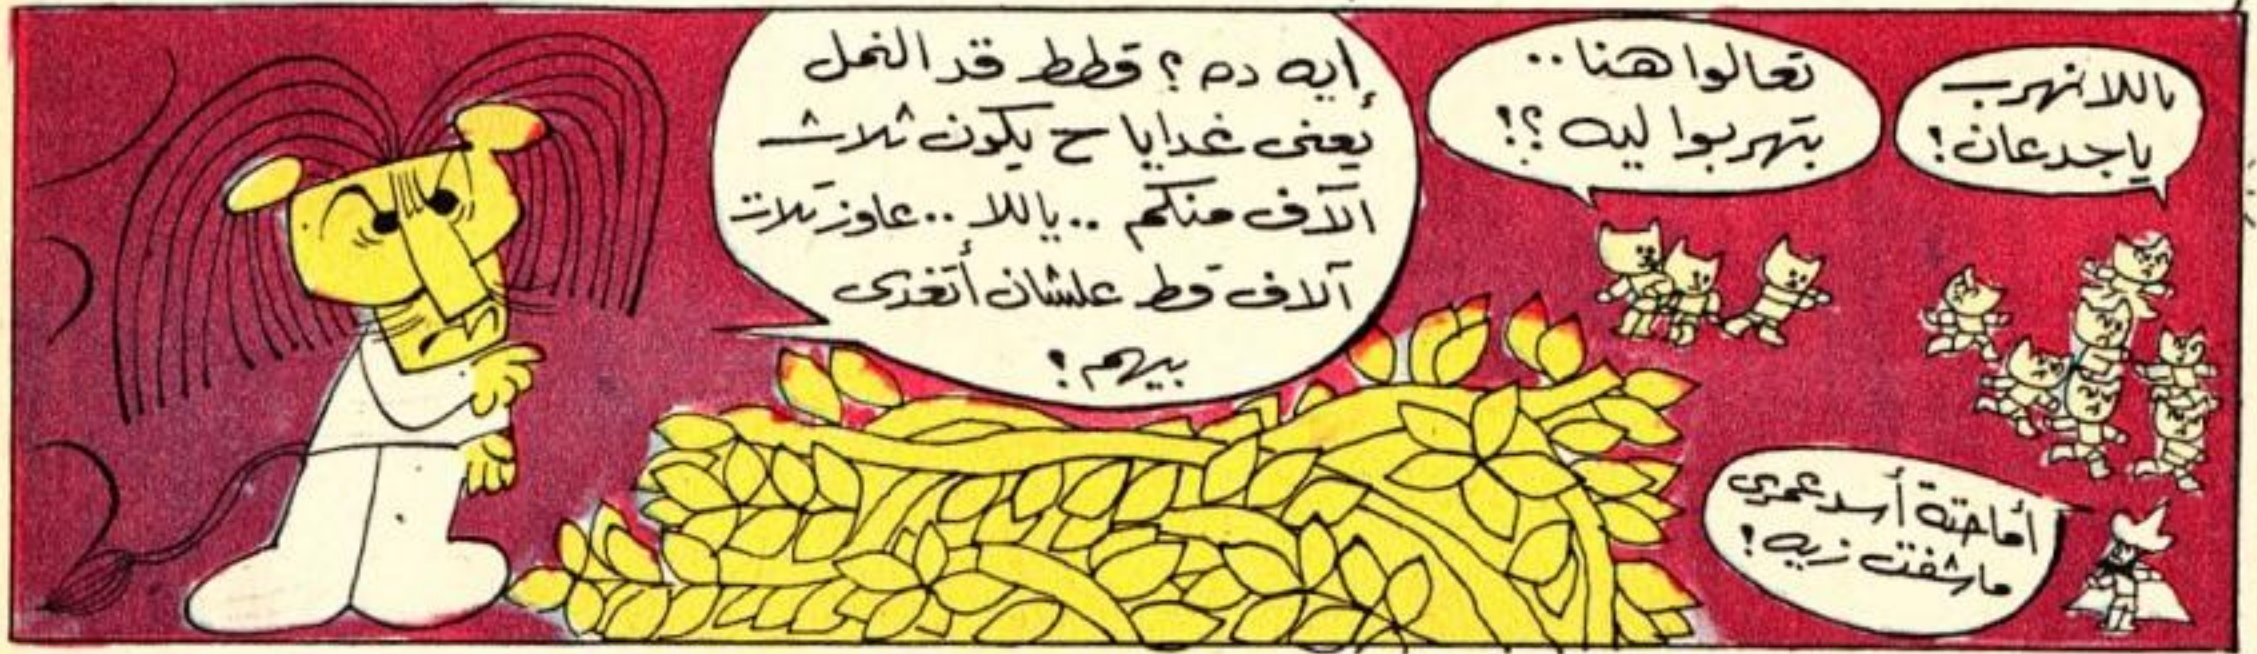 ياللا نهرب
ياجدعان!
تعالوا هنا..
بتهربوا ليه؟!
إيه ده؟ قطط قد النمل
يعنى غدايا ح يكون ثلاث
آلاف منكم .. ياللا .. عاوز تلات
آلاف قط علشان أتغدى
بيهم!
أما حتة أسد عمرى
ماشفت زيه!